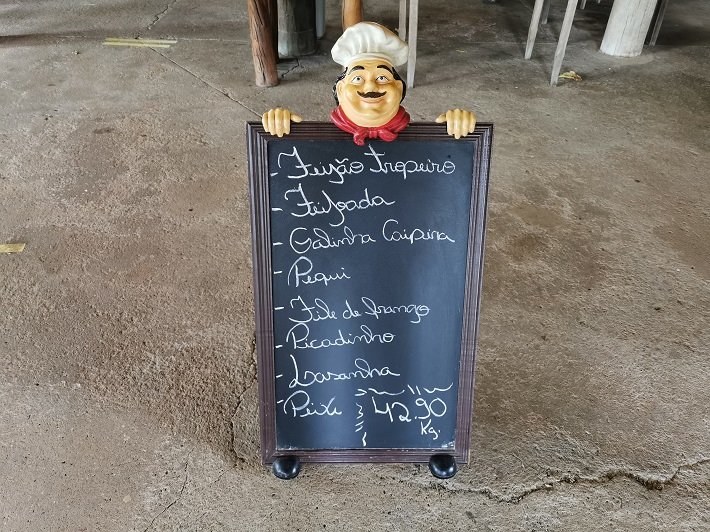 - Feijão Tropeiro
- Feijoada
- Galinha Caipira
- Pequi
- File de frango
- Picadinho
- Lasanha
- Peixe 42.90
Kg.